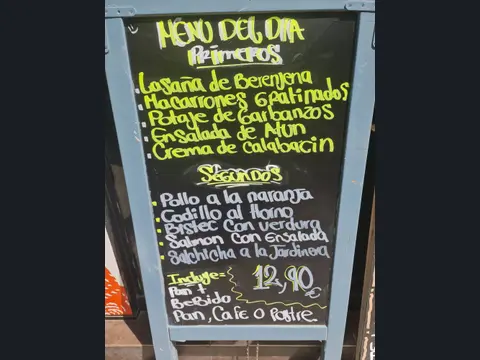 MENU DEL DIA
PRIMEROS
. Lasaña de Berenjena
. Macarrones Gratinados
. Potaje de Garbanzos
. Ensalada de Atun
. Crema de Calabacin
SEGUNDOS
. Pollo a la naranja
. Codillo al Horno
. Bistec con verdura
. Salmon con Ensalada
. Salchicha a la Jardinera
Incluye: 12,90 €
Pan +
Bebido
Pan, Cafe o Postre.